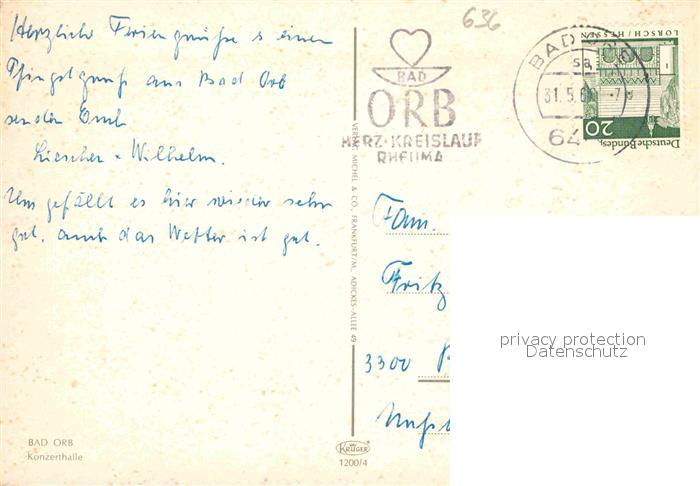 Herzliche Feriengrüße & einen
Pfingstgruß aus Bad Orb
senden Euch
Lieschen + Wilhelm.
Uns gefällt es hier wieder sehr
gut, auch das Wetter ist gut.
BAD ORB
Konzerthalle
VERLAG MICHEL & CO., FRANKFURT/M., ADICKES-ALLEE 49
KRÜGER
1200/4
636
BAD
ORB
HERZ-KREISLAUF
RHEUMA
BAD
31.5.6
64
LORSCH/HESSEN
20
Deutsche Bundes
Fam.
Fritz
3300
privacy protection
Datenschutz